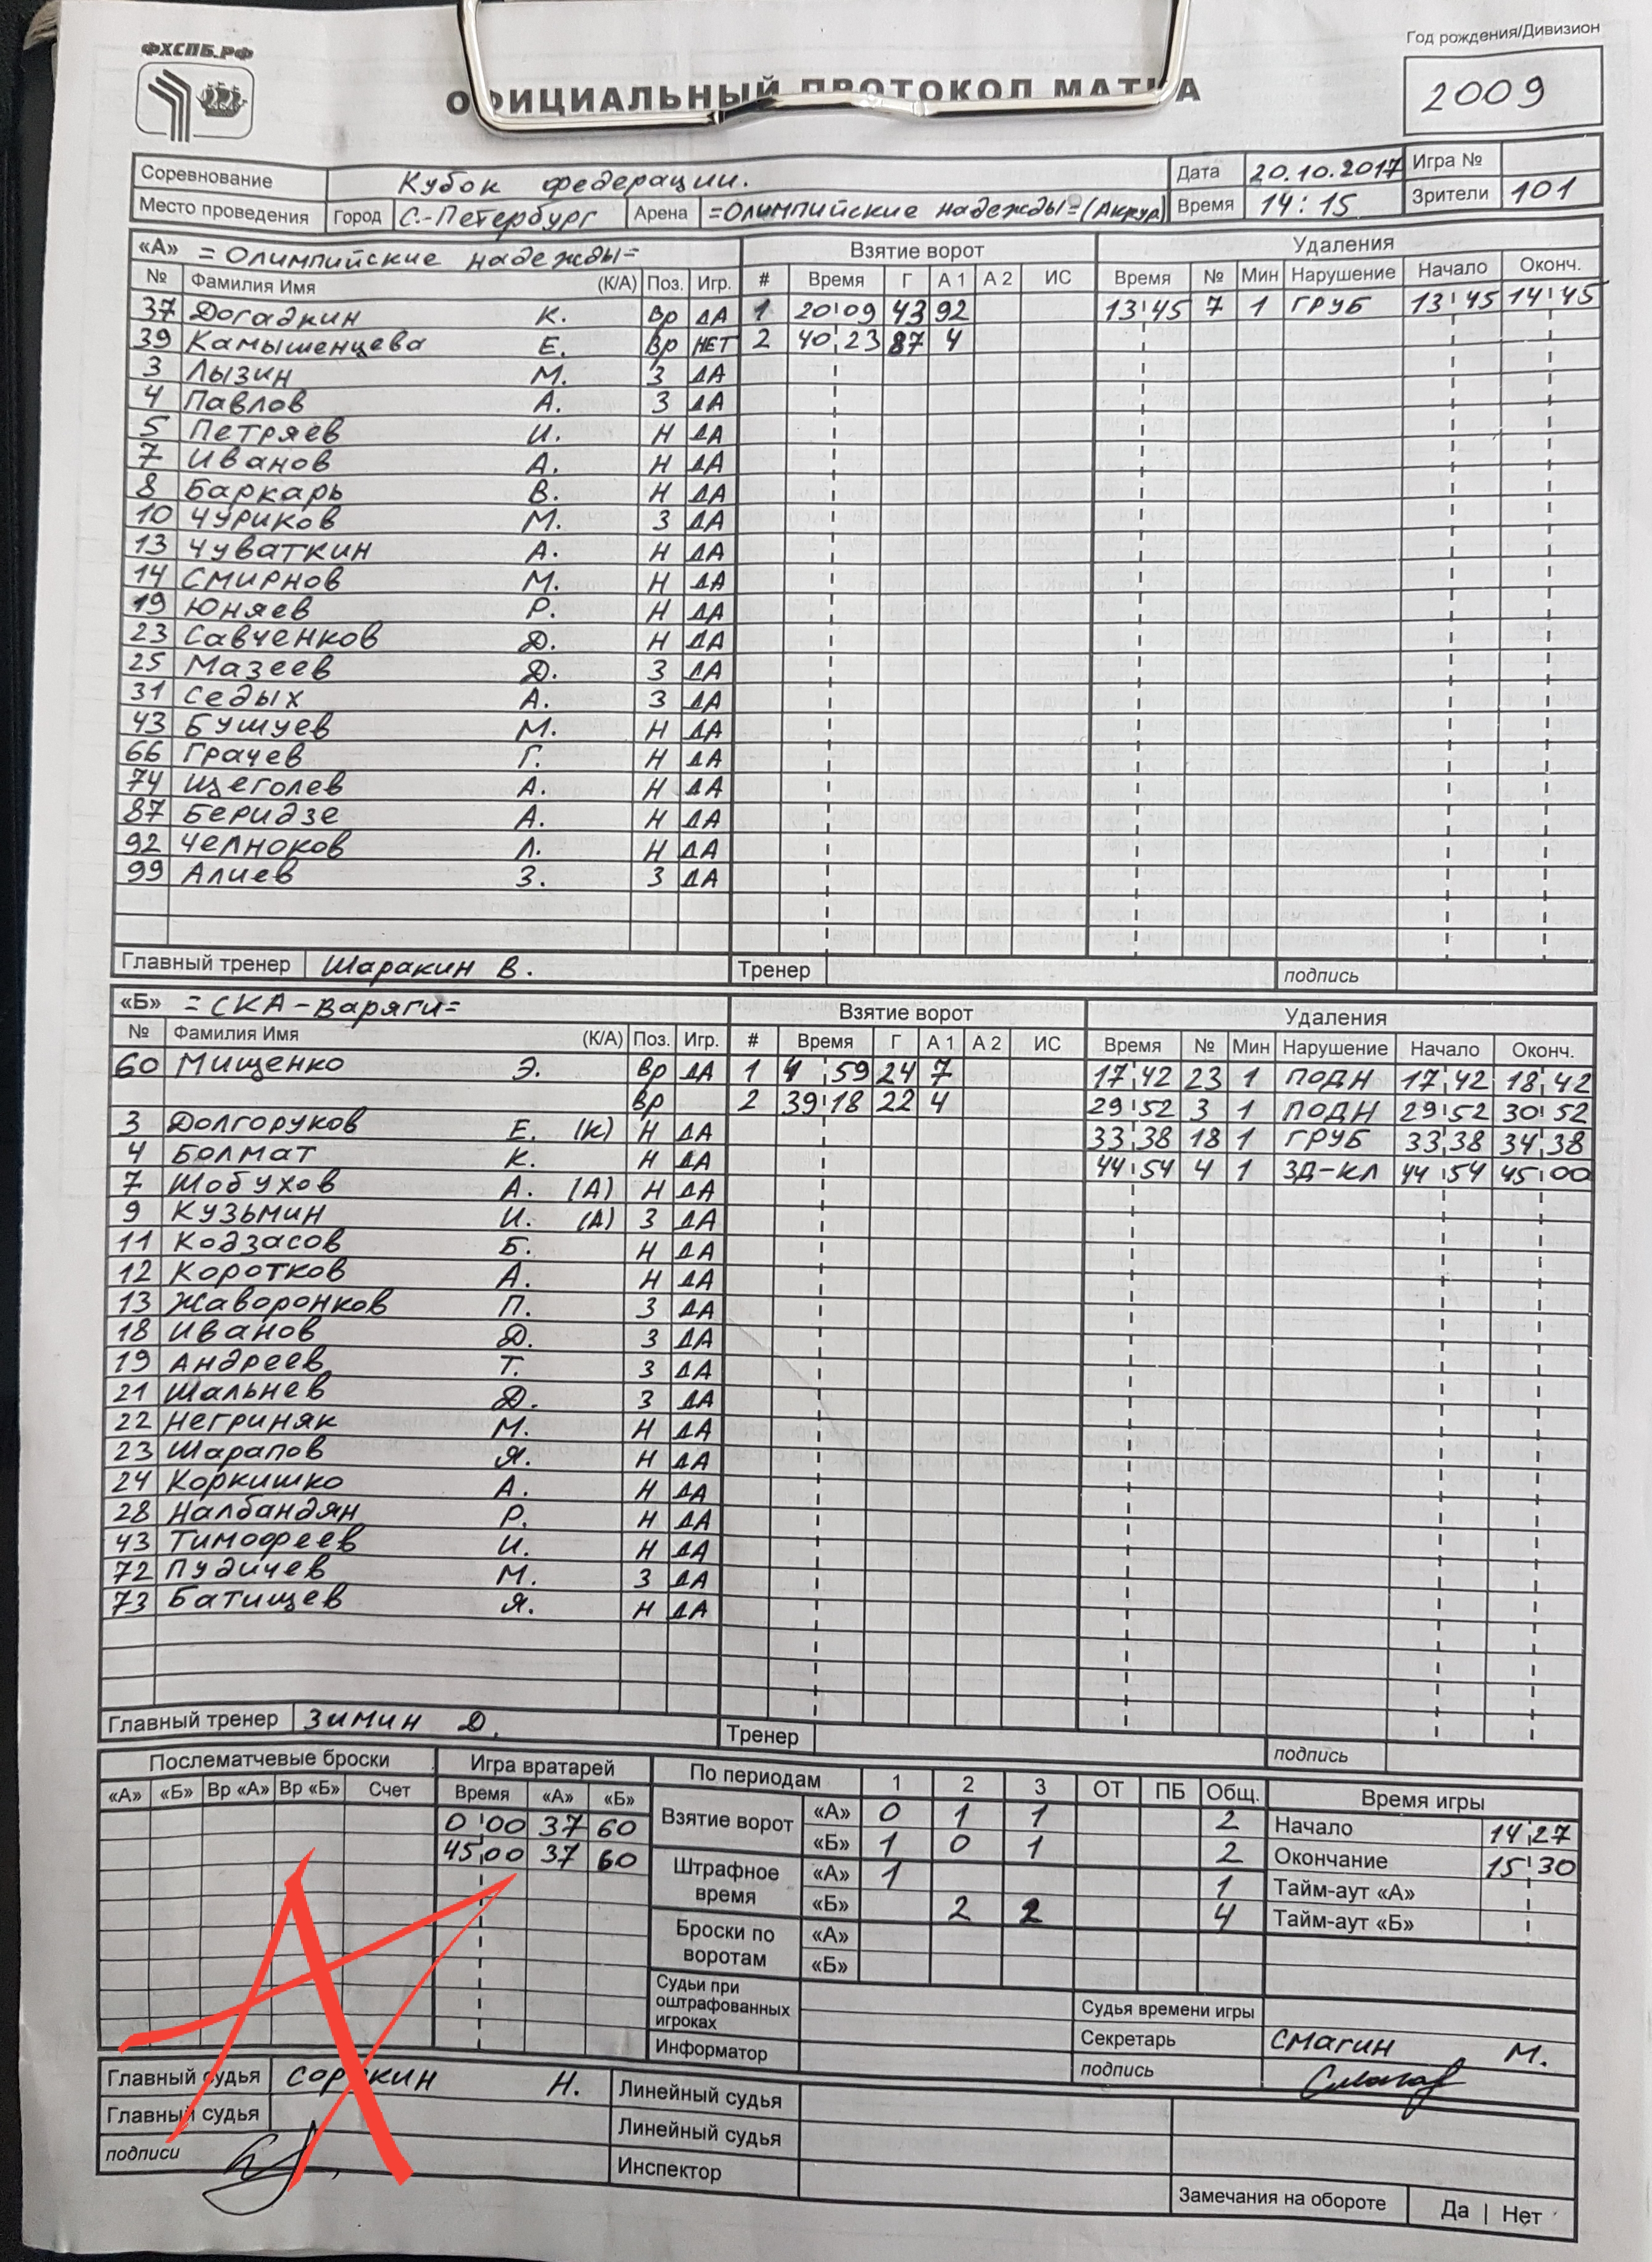 ФХСПБ.РФ
Год рождения/Дивизион
ОФИЦИАЛЬНЫЙ ПРОТОКОЛ МАТЧА
2009
Соревнование Кубок федерации. Дата 20.10.2017 Игра №
Место проведения Город С.-Петербург Арена =Олимпийские надежды= Время 14:15 Зрители 101
«А» =Олимпийские надежды= Взятие ворот Удаления
№ Фамилия Имя (К/А) Поз. Игр. # Время Г А 1 А 2 ИС Время № Мин Нарушение Начало Оконч.
37 Догадкин К. Вр ДА 1 20 09 43 92 13 45 7 1 ГРУБ 13 45 14 45
39 Камышенцева Е. Вр НЕТ 2 40 23 87 4
3 Лызин М. З ДА
4 Павлов А. З ДА
5 Петряев И. Н ДА
7 Иванов А. Н ДА
8 Баркарь В. Н ДА
10 Чуриков М. З ДА
13 Чуваткин А. Н ДА
14 Смирнов М. Н ДА
19 Юняев Р. Н ДА
23 Савченков Д. Н ДА
25 Мазеев Д. З ДА
31 Седых А. З ДА
43 Бушуев М. Н ДА
66 Грачев Г. Н ДА
74 Щеголев А. Н ДА
87 Беридзе А. Н ДА
92 Челноков Л. Н ДА
99 Алиев З. З ДА
Главный тренер Шаракин В. Тренер подпись
«Б» =СКА-Варяги= Взятие ворот Удаления
№ Фамилия Имя (К/А) Поз. Игр. # Время Г А 1 А 2 ИС Время № Мин Нарушение Начало Оконч.
60 Мищенко Э. Вр ДА 1 4 59 24 7 17 42 23 1 ПОДН 17 42 18 42
Вр 2 39 18 22 4 29 52 3 1 ПОДН 29 52 30 52
3 Долгоруков Е. (К) Н ДА 33 38 18 1 ГРУБ 33 38 34 38
4 Болмат К. Н ДА 44 54 4 1 ЗД-КЛ 44 54 45 00
7 Шобухов А. (А) Н ДА
9 Кузьмин И. (А) З ДА
11 Кодзасов Б. Н ДА
12 Коротков А. Н ДА
13 Жаворонков П. З ДА
18 Иванов Д. З ДА
19 Андреев Т. З ДА
21 Шальнев Д. З ДА
22 Негриняк М. Н ДА
23 Шарапов Я. Н ДА
24 Коркишко А. Н ДА
28 Налбандян Р. Н ДА
43 Тимофеев И. Н ДА
72 Пудичев М. З ДА
73 Батищев Я. Н ДА
Главный тренер Зимин Д. Тренер подпись
Послематчевые броски Игра вратарей По периодам 1 2 3 ОТ ПБ Общ. Время игры
«А» «Б» Вр «А» Вр «Б» Счет Время «А» «Б»
Взятие ворот «А» 0 1 1 2 Начало 14 27
0 00 37 60 «Б» 1 0 1 2 Окончание 15 30
45 00 37 60 Штрафное время «А» 1 1 Тайм-аут «А»
«Б» 2 2 4 Тайм-аут «Б»
Броски по воротам «А»
«Б»
Судьи при оштрафованных игроках Судья времени игры
Информатор Секретарь Смагин М.
подпись
Главный судья Сорокин Н. Линейный судья
Главный судья Линейный судья
подписи Инспектор
Замечания на обороте Да | Нет